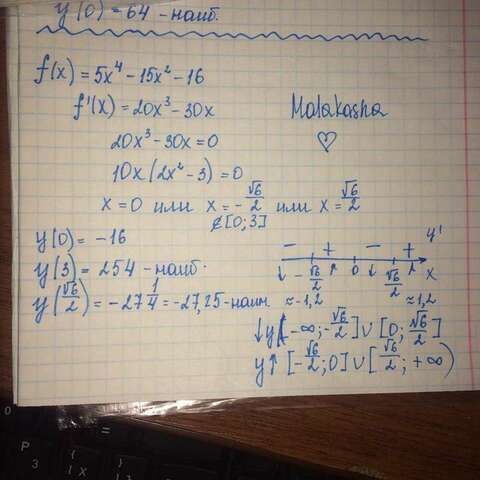 y(0) = 64 - наиб.
f(x) = 5x⁴ - 15x² - 16
f'(x) = 20x³ - 30x
Malakasha
20x³ - 30x = 0
10x(2x² - 3) = 0
x = 0 или x = -√6/2 или x = √6/2
∉[0; 3]
y(0) = -16
y(3) = 254 - наиб.
y(√6/2) = -27 1/4 = -27,25 - наим.
- + - + y'
-√6/2 0 √6/2 x
≈ -1,2 ≈ 1,2
↓y(-∞; -√6/2] ∪ [0; √6/2]
y↑ [-√6/2; 0] ∪ [√6/2; +∞)
0 =
P { }
3 [ X ]